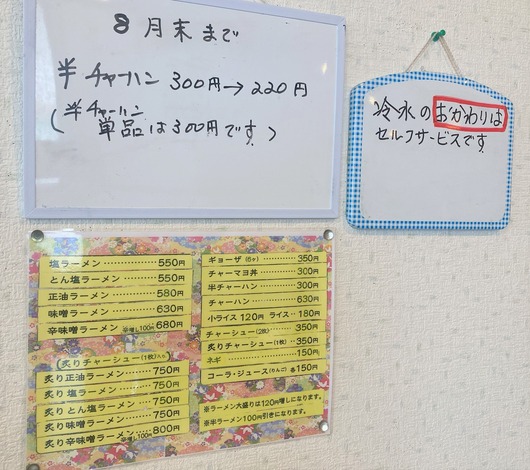 8月末まで
半チャーハン 300円→220円
(半チャーハン
単品は300円です)
冷水のおかわりは
セルフサービスです
塩ラーメン………550円
とん塩ラーメン………550円
正油ラーメン………580円
味噌ラーメン………630円
辛味噌ラーメン 辛増し100円 680円
(炙りチャーシュー(1枚)入り)
炙り正油ラーメン………750円
炙り塩ラーメン………750円
炙りとん塩ラーメン………750円
炙り味噌ラーメン………750円
炙り辛味噌ラーメン 辛増し100円 800円
ギョーザ(5ヶ)………350円
チャーマヨ丼………300円
半チャーハン………300円
チャーハン………630円
小ライス120円 ライス‥180円
チャーシュー(2枚)………350円
炙りチャーシュー(1枚)………350円
ネギ………150円
コーラ・ジュース(りんご)各150円
※ラーメン大盛りは120円増しになります。
※半ラーメン100円引きになります。